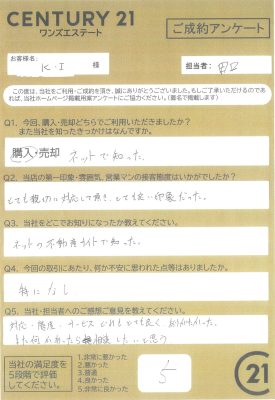 CENTURY 21
ワンズエステート
ご成約アンケート
お客様名: K.I 様
担当者:
この度は、当社をご利用・ご成約を頂き、誠にありがとうございました。もしご了承いただけるのであれば、当社ホームページ掲載用案アンケートにご協力ください。(匿名で掲載します)
Q1. 今回、購入・売却どちらでご利用いただきましたか?
また当社を知ったきっかけはなんですか。
購入・売却 ネットで知った。
Q2. 当店の第一印象・雰囲気、営業マンの接客態度はいかがでしたか?
とても親切に対応して頂き、とても良い印象だった。
Q3. 当社をどこでお知りになったか教えてください。
ネットの不動産サイトで知った。
Q4. 今回の取引にあたり、何か不安に思われた点等はありましたか。
特になし
Q5. 当社・担当者へのご感想ご意見を教えてください。
対応・態度・サービスどれもとても良く、ありがたかった。
また何かあったら相談したいと思う
当社の満足度を
5段階で評価
してください。
1.非常に悪かった
2.悪かった
3.普通
4.良かった
5.非常に良かった
5
21